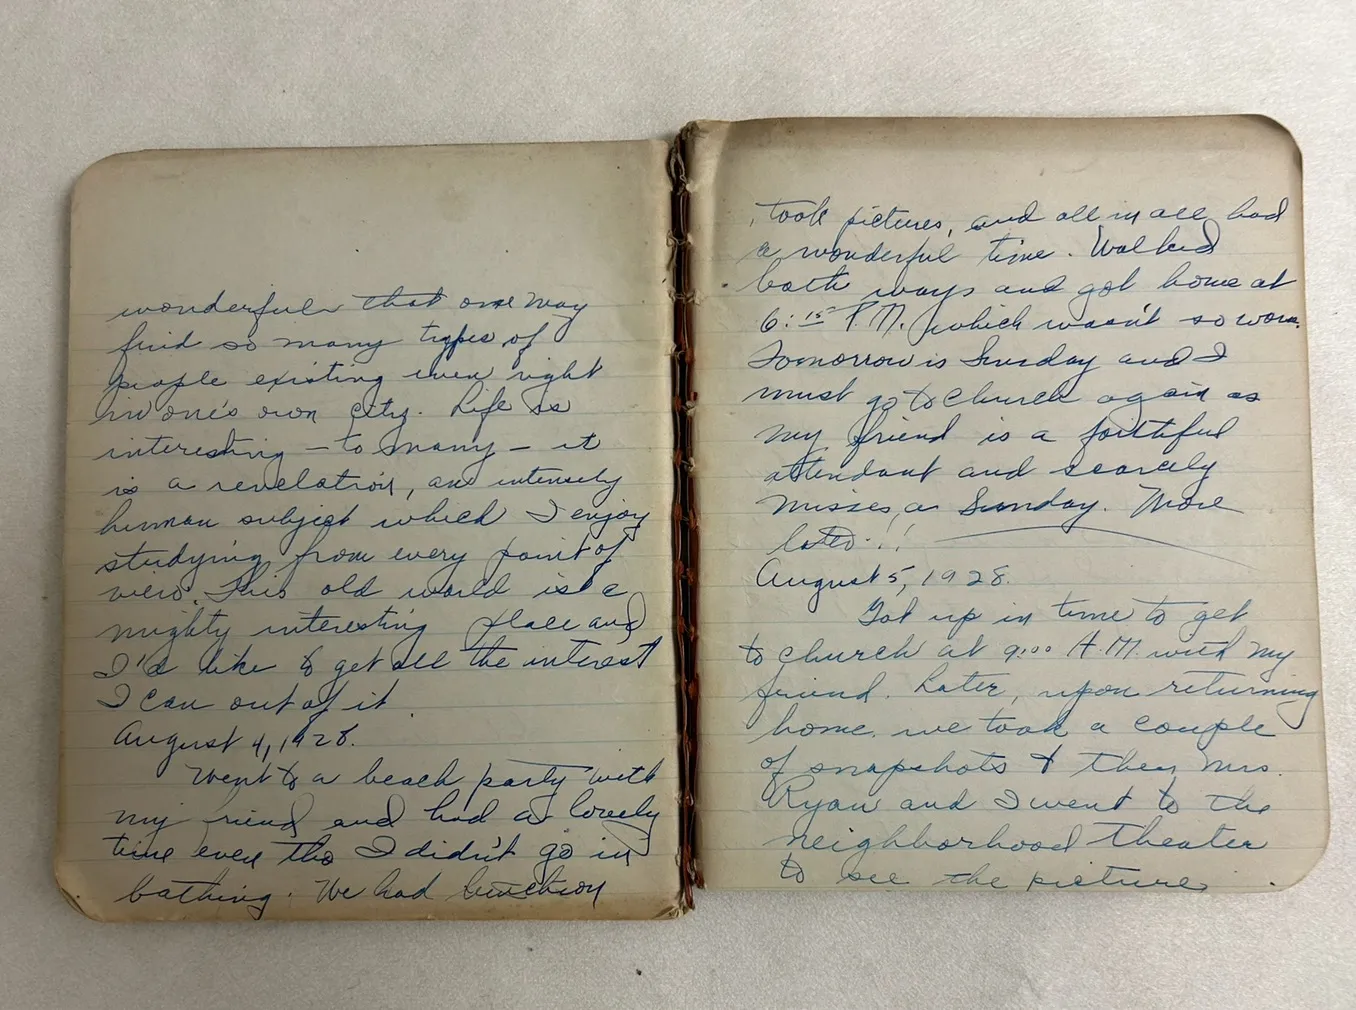 wonderful that one may
find so many types of
people existing even right
in one's own city. Life is
interesting – to many – it
is a revelation, an intensely
human subject which I enjoy
studying from every point of
view. This old world is a
mighty interesting place and
I'd like to get all the interest
I can out of it
August 4, 1928.
Went to a beach party with
my friend and had a lovely
time even tho I didn't go in
bathing. We had luncheon
took pictures, and all in all had
a wonderful time. Walked
both ways and got home at
6:15 P.M. which wasn't so
Tomorrow is Sunday and I
must go to church again as
my friend is a faithful
attendant and scarcely
misses a Sunday. More
later!!
August 5, 1928.
Got up in time to get
to church at 9:00 A.M. with my
friend. Later, upon returning
home, we took a couple
of snapshots & then Mrs.
Ryan and I went to the
neighborhood theater
to see the picture